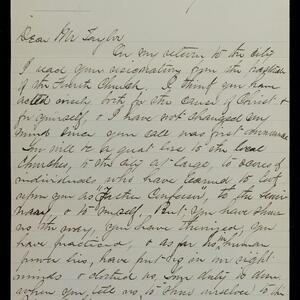 Dear Mr Taylor
On my return to the city
I read your resignation from the pastorate
of the Fourth Church. I think you have
acted wisely both for the cause of Christ &
for yourself, & I have not changed my
mind since your call was first announced.
You will be a great loss to the local
Churches, to the city at large, to scores of
individuals who have learned to look
upon you as "Father Confessor", to the
& to myself. But you have shown
us the way, you have theorized, you
have practiced, & as far as human
power lies, have put dig in our right
hands & us. Our duty is done
when you tell us to ourselves to the